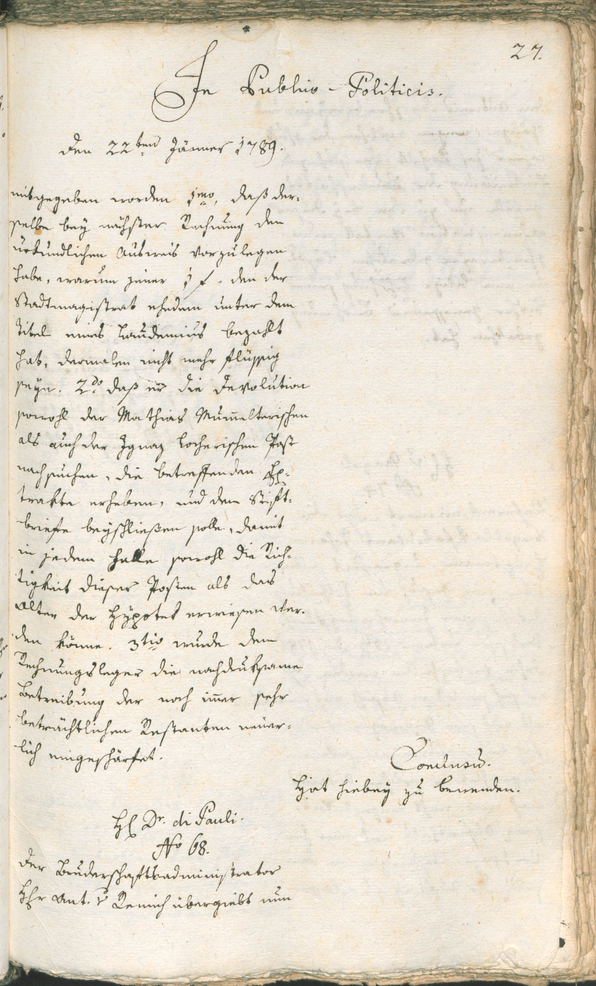 27.
In Publico-Politicis.
den 22ten Jänner 1789.
mitgegeben worden 1mo, daß der-
selbe bey nächster Rechnung den
urkundlichen Ausweis vorzulegen
habe, warum jener 1 f. den der
Stadtmagistrat ehedem unter dem
Titel eines Laudemius bezahlt
hat, dermalen nicht mehr flüssig
seyn. 2do daß er die Devolution
sowohl der Mathias Mumelterischen
als auch der Ignaz Locherischen Post
nachsuchen, die betreffenden Ex-
trakte erheben, und dem Stift-
briefe beyschließen solle, damit
in jedem Falle sowohl die Rich-
tigkeit dieser Posten als das
Alter der Hypotek erwiesen wer-
den könne. 3tio wurde dem
Rechnungsleger die nachdruksame
Betreibung der noch immer sehr
beträchtlichen Restanten neuer-
lich eingeschärfet.
Conclusum.
Hat hiebey zu bewenden.
H Dr. di Pauli.
No 68.
Der Bruderschaftsadministrator
Hr Ant. v Remich übergiebt nun